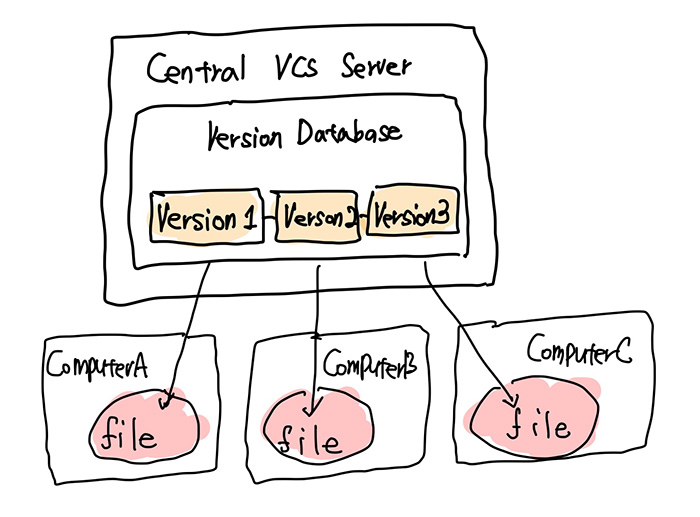 Central VCS Server
Version Database
Version 1 Verson 2 Version3
ComputerA ComputerB ComputerC
file file file